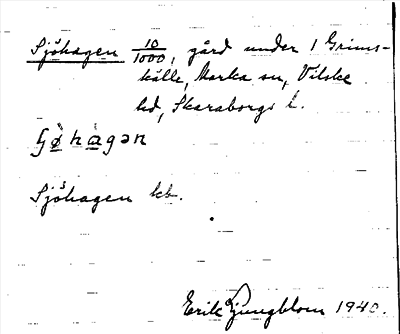 Sjöhagen 10/1000, gård under 1 Grims-
källe, Marka sn, Vilske
hd, Skaraborgs l.
ʃø̀hàgən
Sjöhagen kb.
Erik Ljungblom 1940.